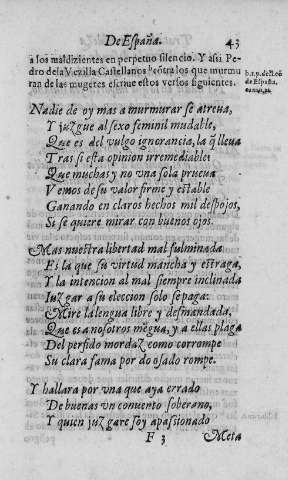 De España. 43
a los maldizientes en perpetuo silencio. Y assi Pe-
dro dela Vezilla Castellanos contra los que murmu
ran de las mugeres escriue estos versos siguientes.
Nadie de oy mas a murmurar se atreua,
Y juzgue al sexo feminil mudable,
Que es del vulgo ignorancia, la q̃ lleua
Tras si esta opinion irremediable:
Que muchas y no vna sola prueua
Vemos de su valor firme y estable
Ganando en claros hechos mil despojos,
Si se quiere mirar con buenos ojos.
Mas nuestra libertad mal fulminada
Es la que su virtud mancha y estraga,
Y la intencion al mal siempre inclinada
Iuzgar a su eleccion solo se paga:
Mire la lengua libre y desmandada,
Que es a nosotros mẽgua, y a ellas plaga
Del perfido mordaz como corrompe
Su clara fama por do osado rompe.
Y hallara por vna que aya errado
De buenas vn conuento soberano,
Y quien juzgare soy apassionado
F 3 Meta
de España.